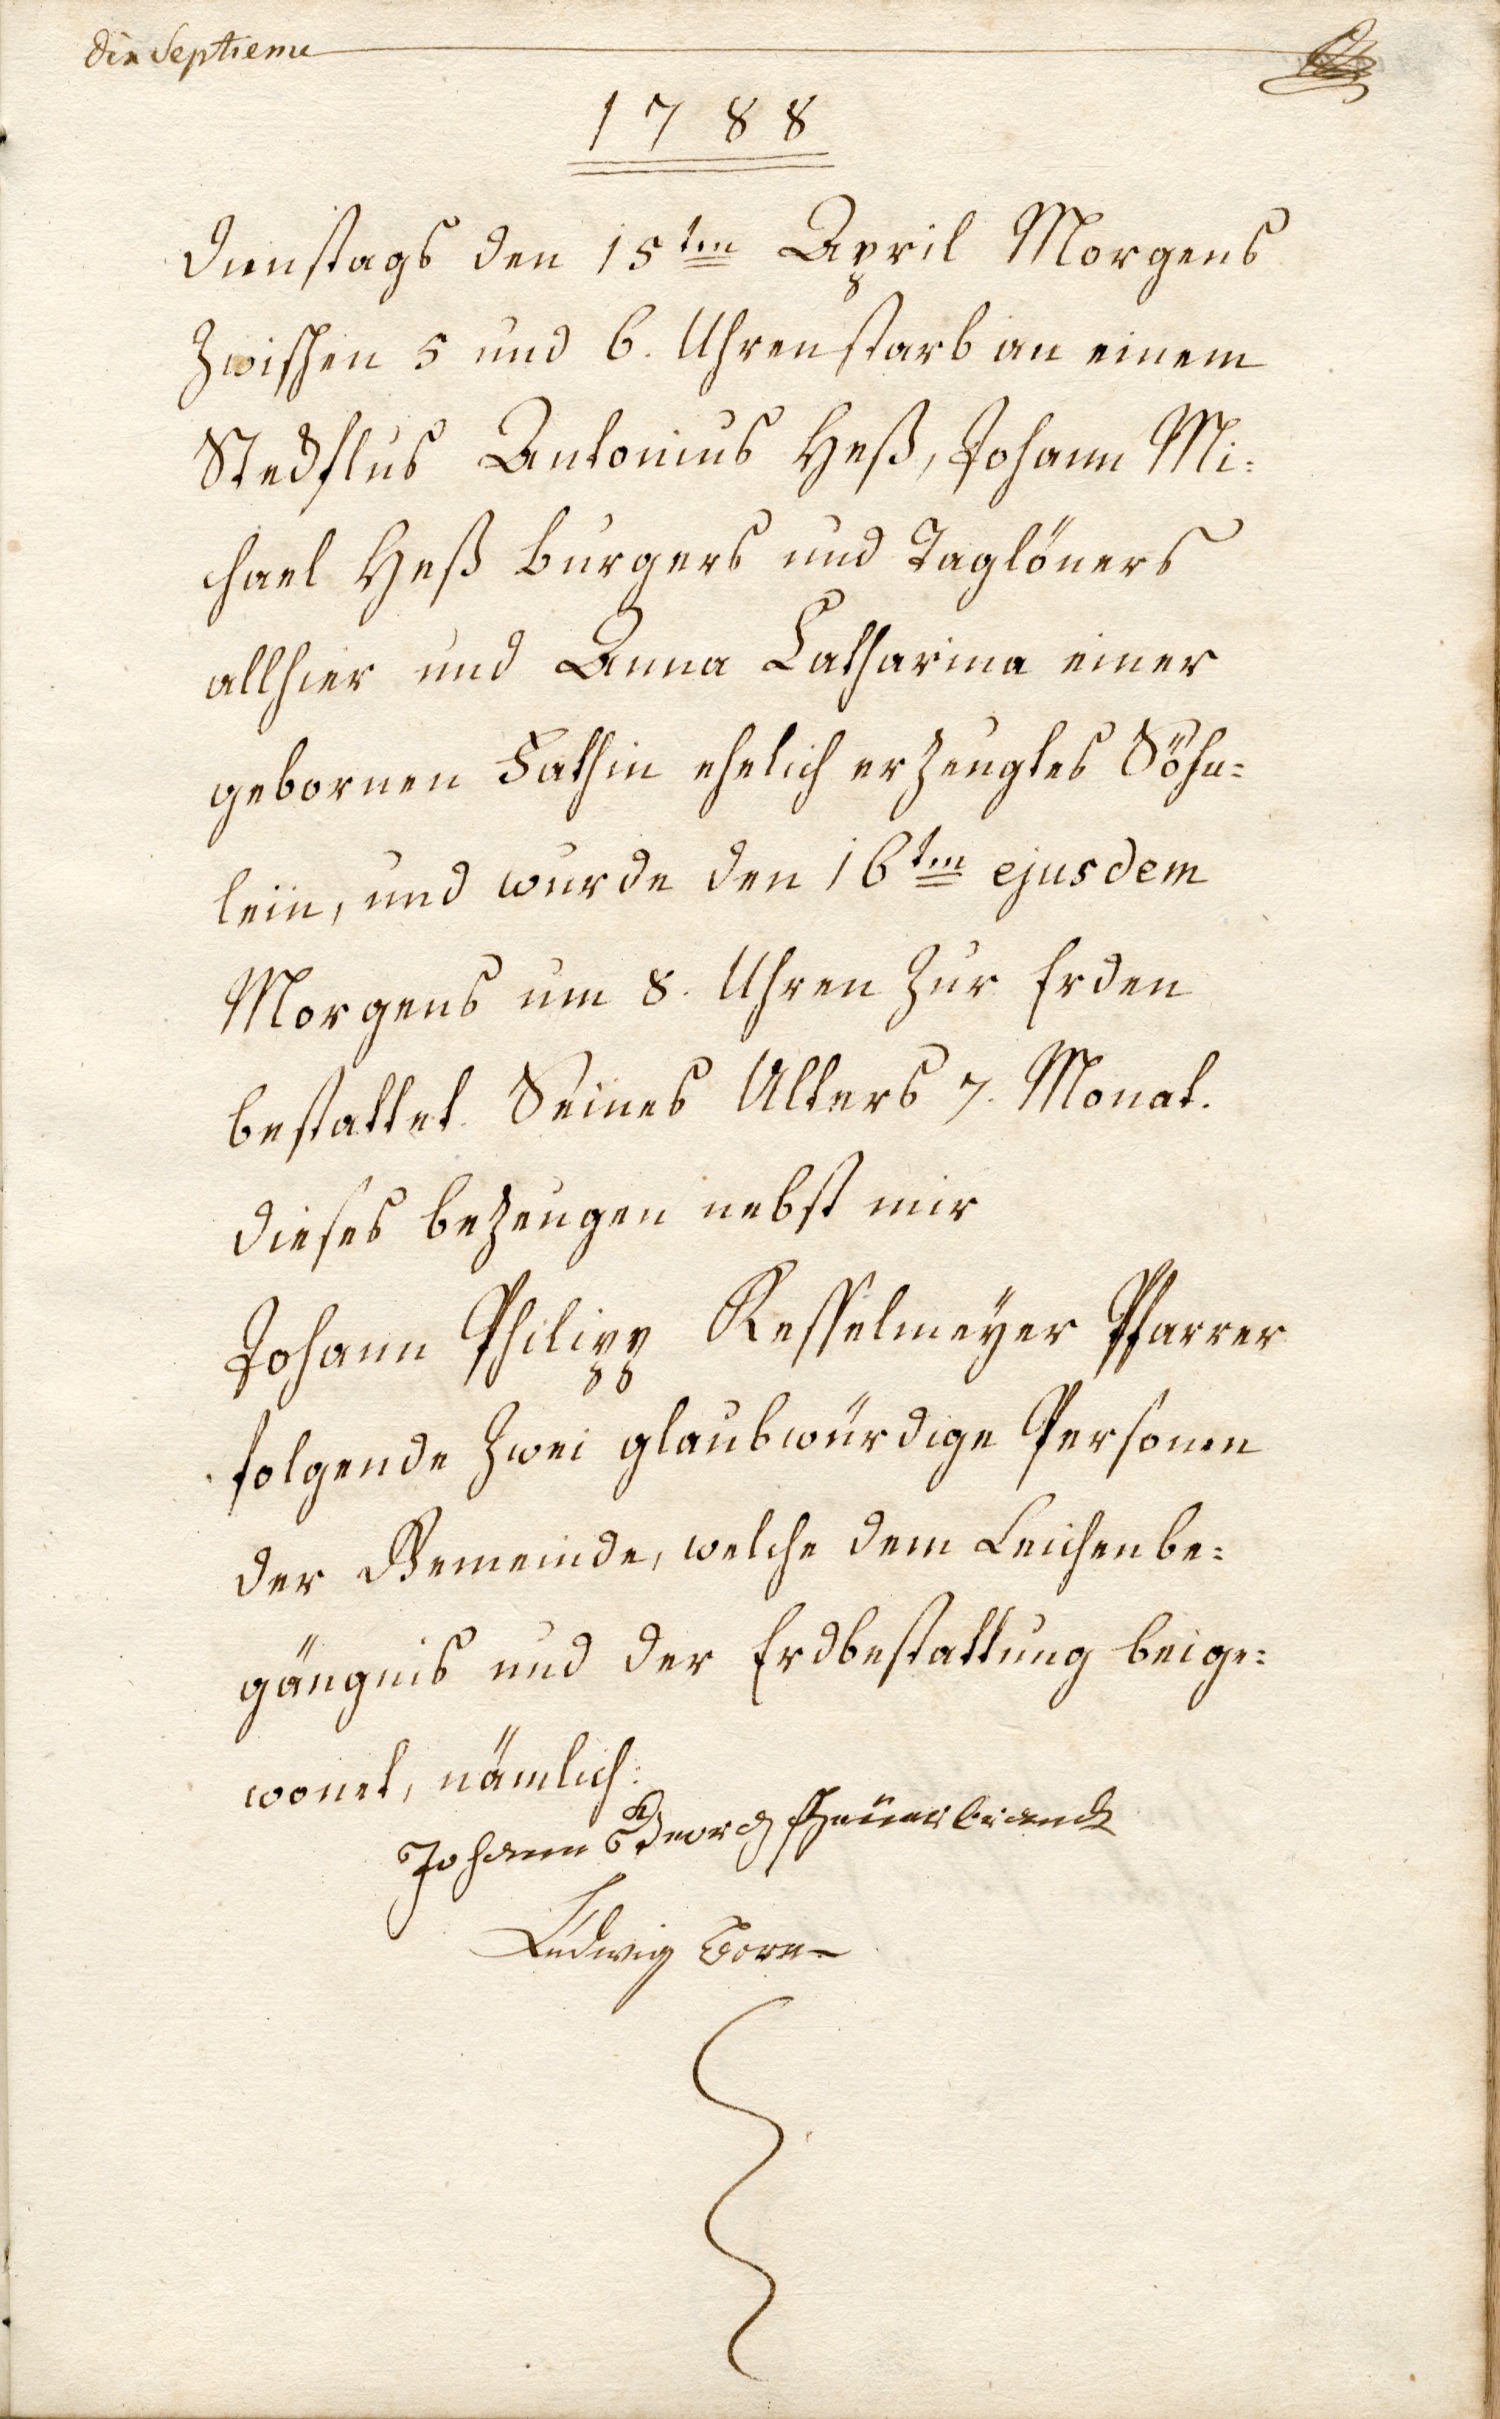 Dix Septieme
1788
Dienstags den 15ten April Morgens
Zwischen 5 und 6. Uhren starb an einem
Stedflus Antonius Heß, Johann Mi=
chael Heß burgers und Taglöners
allhier und Anna Catharina einer
gebornen Fathin ehelich erzeugtes Söhn=
lein, und wurde den 16ten ejusdem
Morgens um 8. Uhren zur Erden
bestattet. Seines Alters 7. Monat.
Dieses bezeugen nebst mir
Johann Philipp Kesselmeyer Pfarrer
folgende zwei glaubwürdige Personen
der Gemeinde, welche dem Leichenbe=
gängnis und der Erdbestattung beige=
wonet, nämlich:
Johann Georg
Ludwig Born